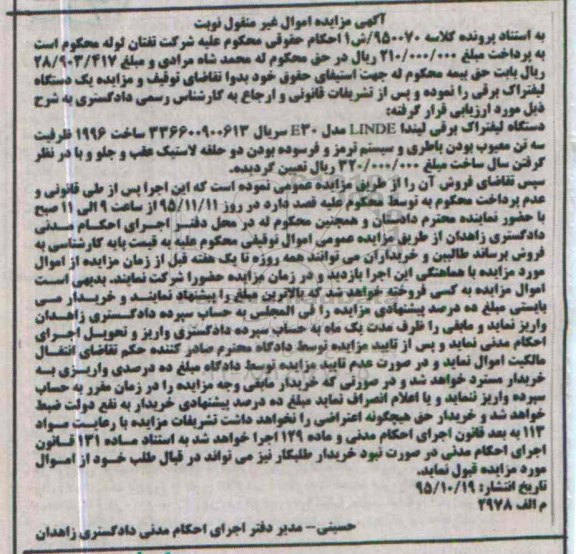 آگهی مزایده اموال غیر منقول نوبت
به استناد پرونده کلاسه ۹۵۰۰۷۰/ش۱ احکام حقوقی محکوم علیه شرکت تفتان لوله محکوم است
به پرداخت مبلغ ۲۱۰/۰۰۰/۰۰۰ ریال در حق محکوم له محمد شاه مرادی و مبلغ ۲۸/۹۰۳/۴۱۷
ریال بابت حق بیمه محکوم له جهت استیفای حقوق خود بدوا تقاضای توقیف و مزایده یک دستگاه
لیفتراک برقی را نموده و پس از تشریفات قانونی و ارجاع به کارشناس رسمی دادگستری به شرح
ذیل مورد ارزیابی قرار گرفته:
دستگاه لیفتراک برقی لیندا LINDE مدل E۳۰ سریال ۳۳۶۶۰۰۹۰۰۶۱۳ ساخت ۱۹۹۶ ظرفیت
سه تن معیوب بودن باطری و سیستم ترمز و فرسوده بودن دو حلقه لاستیک عقب و جلو و با در نظر
گرفتن سال ساخت مبلغ ۳۲۰/۰۰۰/۰۰۰ ریال تعیین گردیده.
سپس تقاضای فروش آن را از طریق مزایده عمومی نموده است که این اجرا پس از طی قانونی و
عدم پرداخت محکوم به توسط محکوم علیه قصد دارد در روز ۹۵/۱۱/۱۱ از ساعت ۹ الی ۱۱ صبح
با حضور نماینده محترم دادستان و همچنین محکوم له در محل دفتر اجرای احکام مدنی
دادگستری زاهدان از طریق مزایده عمومی اموال توقیفی محکوم علیه به قیمت پایه کارشناسی به
فروش برساند طالبین و خریداران می توانند همه روزه تا یک هفته قبل از زمان مزایده از اموال
مورد مزایده با هماهنگی این اجرا بازدید و در زمان مزایده حضورا شرکت نمایند. بدیهی است
اموال مزایده به کسی فروخته خواهد شد که بالاترین مبلغ را پیشنهاد نمایند و خریدار می
بایستی مبلغ ده درصد پیشنهادی مزایده را فی المجلس به حساب سپرده دادگستری زاهدان
واریز نماید و مابقی را ظرف مدت یک ماه به حساب سپرده دادگستری واریز و تحویل اجرای
احکام مدنی نماید و پس از تایید مزایده توسط دادگاه محترم صادر کننده حکم تقاضای انتقال
مالکیت اموال نماید و در صورت عدم تایید مزایده توسط دادگاه مبلغ ده درصدی واریزی به
خریدار مسترد خواهد شد و در صورتی که خریدار مابقی وجه مزایده را در زمان مقرر به حساب
سپرده واریز ننماید و یا اعلام انصراف نماید مبلغ ده درصد پیشنهادی خریدار به نفع دولت ضبط
خواهد شد و خریدار حق هیچگونه اعتراضی را نخواهد داشت تشریفات مزایده با رعایت مواد
۱۱۳ به بعد قانون اجرای احکام مدنی و ماده ۱۲۹ اجرا خواهد شد به استناد ماده ۱۳۱ قانون
اجرای احکام مدنی در صورت نبود خریدار طلبکار نیز می تواند در قبال طلب خود از اموال
مورد مزایده قبول نماید.
تاریخ انتشار: ۹۵/۱۰/۱۹
م الف ۲۹۷۸
حسینی- مدیر دفتر اجرای احکام مدنی دادگستری زاهدان